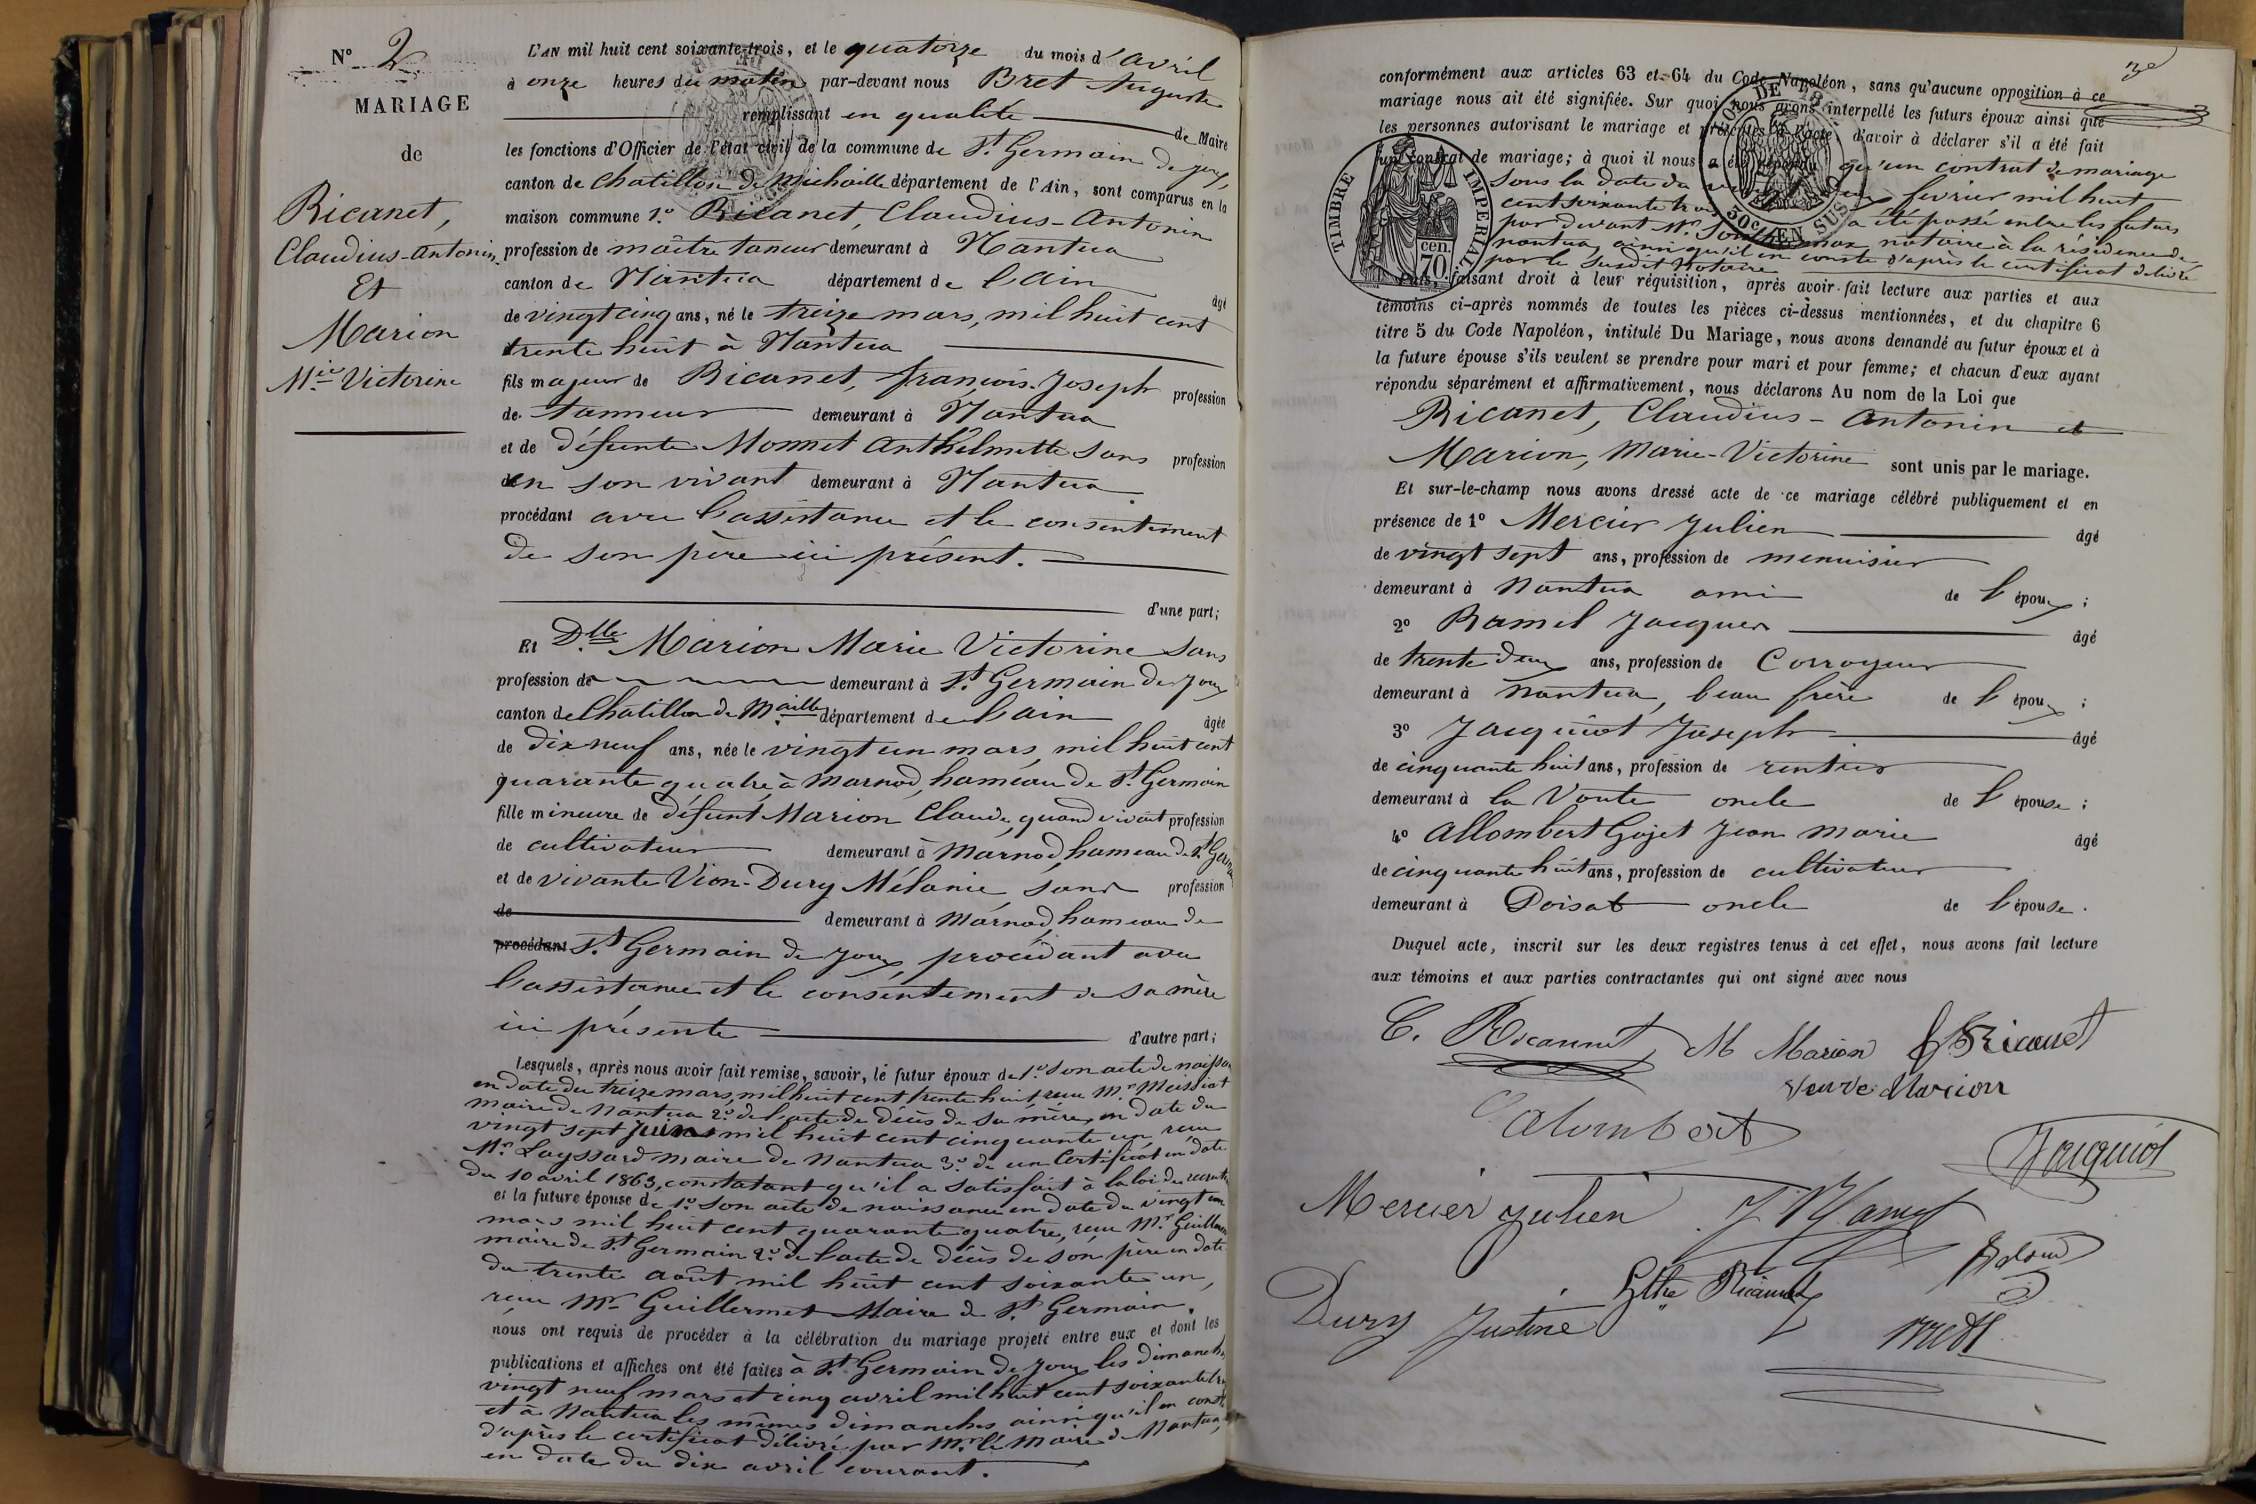 N° 2
MARIAGE
de
Ricanet,
Claudius-Antonin
Et
Marion
M.ie Victorine
L'AN mil huit cent soixante-trois, et le quatorze du mois d'avril
à onze heures du matin par-devant nous Bret Auguste
remplissant en qualité de Maire
les fonctions d'Officier de l'état civil de la commune de St. Germain de joux,
canton de Chatillon de Michaille département de l'Ain, sont comparus en la
maison commune 1.° Ricanet, Claudius-Antonin
profession de maître taneur demeurant à Nantua
canton de Nantua département de L'ain
âgé
de vingt cinq ans, né le treize mars, mil huit cent
trente huit à Nantua
fils majeur de Ricanet, françois-Joseph profession
de tanneur demeurant à Nantua
et de défunte Monnet Anthelmette sans profession
en son vivant demeurant à Nantua.
procédant avec l'assistance et le consentement
de son père ici présent.
d'une part;
Et D.lle Marion Marie Victorine sans
profession de demeurant à St. Germain de Joux
canton de Chatillon de M.aille département de L'ain âgée
de dix neuf ans, née le vingt un mars, mil huit cent
quarante quatre à Marnod, hameau de St. Germain
fille mineure de défunt Marion Claude, quand vivait profession
de cultivateur demeurant à Marnod, hameau de St. Germ
et de vivante Vion-Dury Mélanie, sans profession
de demeurant à Marnod, hameau de
procédant St. Germain de Joux, procédant avec
l'assistance et le consentement de sa mère
ici présente d'autre part;
Lesquels, après nous avoir fait remise, savoir, le futur époux de 1.° son acte de naissan
en date du treize mars, mil huit cent trente huit, reçu Mr. Meissiat
maire de Nantua 2.° de l'acte de décès de sa mère, en date du
vingt sept juin mil huit cent cinquante un reçu
Mr. Layssard maire de Nantua 3.° de un Certificat en date
du 10 avril 1863, constatant qu'il a satisfait à la loi de recrut
et la future épouse de 1.° son acte de naissance en date du vingt un
mars mil huit cent quarante quatre, reçu Mr. Guillerm
maire de St. Germain 2.° de l'acte de décès de son père en date
du trente août mil huit cent soixante un,
reçu Mr. Guillermet Maire de St. Germain.
nous ont requis de procéder à la célébration du mariage projeté entre eux et dont les
publications et affiches ont été faites à St. Germain de Joux les dimanch
vingt neuf mars et cinq avril mil huit cent soixante tr
et à Nantua les mêmes dimanches ainsi qu'il en const
d'après le certificat délivré par Mr. le Maire de Nantua,
en date du dix avril courant.
conformément aux articles 63 et 64 du Code Napoléon, sans qu'aucune opposition à ce
mariage nous ait été signifiée. Sur quoi nous avons interpellé les futurs époux ainsi que
les personnes autorisant le mariage et présentes à l'acte d'avoir à déclarer s'il a été fait
un contrat de mariage; à quoi il nous a été répondu qu'un contrat de mariage
sous la date du fevrier mil huit
cent soixante trois a été passé entre les futurs
par devant Mr. notaire à la résidence de
nantua, ainsi qu'il en conste d'après le certificat délivré
par le susdit Notaire
TIMBRE IMPERIAL
cen.
70.
50c. EN SUS
Puis, faisant droit à leur réquisition, après avoir fait lecture aux parties et aux
témoins ci-après nommés de toutes les pièces ci-dessus mentionnées, et du chapitre 6
titre 5 du Code Napoléon, intitulé Du Mariage, nous avons demandé au futur époux et à
la future épouse s'ils veulent se prendre pour mari et pour femme; et chacun d'eux ayant
répondu séparément et affirmativement, nous déclarons Au nom de la Loi que
Ricanet, Claudius-Antonin et
Marion, Marie-Victorine sont unis par le mariage.
Et sur-le-champ nous avons dressé acte de ce mariage célébré publiquement et en
présence de 1° Mercier Julien âgé
de vingt sept ans, profession de menuisier
demeurant à Nantua ami de l'époux;
2° Ramel Jacques âgé
de trente deux ans, profession de Corroyeur
demeurant à nantua, beau frère de l'époux;
3° Jacquiot Joseph âgé
de cinquante huit ans, profession de rentier
demeurant à la Voute oncle de l'épouse;
4° Allombert Gojet Jean Marie âgé
de cinquante huit ans, profession de cultivateur
demeurant à Doisat oncle de l'épouse.
Duquel acte, inscrit sur les deux registres tenus à cet effet, nous avons fait lecture
aux témoins et aux parties contractantes qui ont signé avec nous
C. Ricannet M Marion Ricanet
veuve Marion
Alombert
Jacquiot
Mercier julien J Ramel
Dury Justine Ricanet
Bret